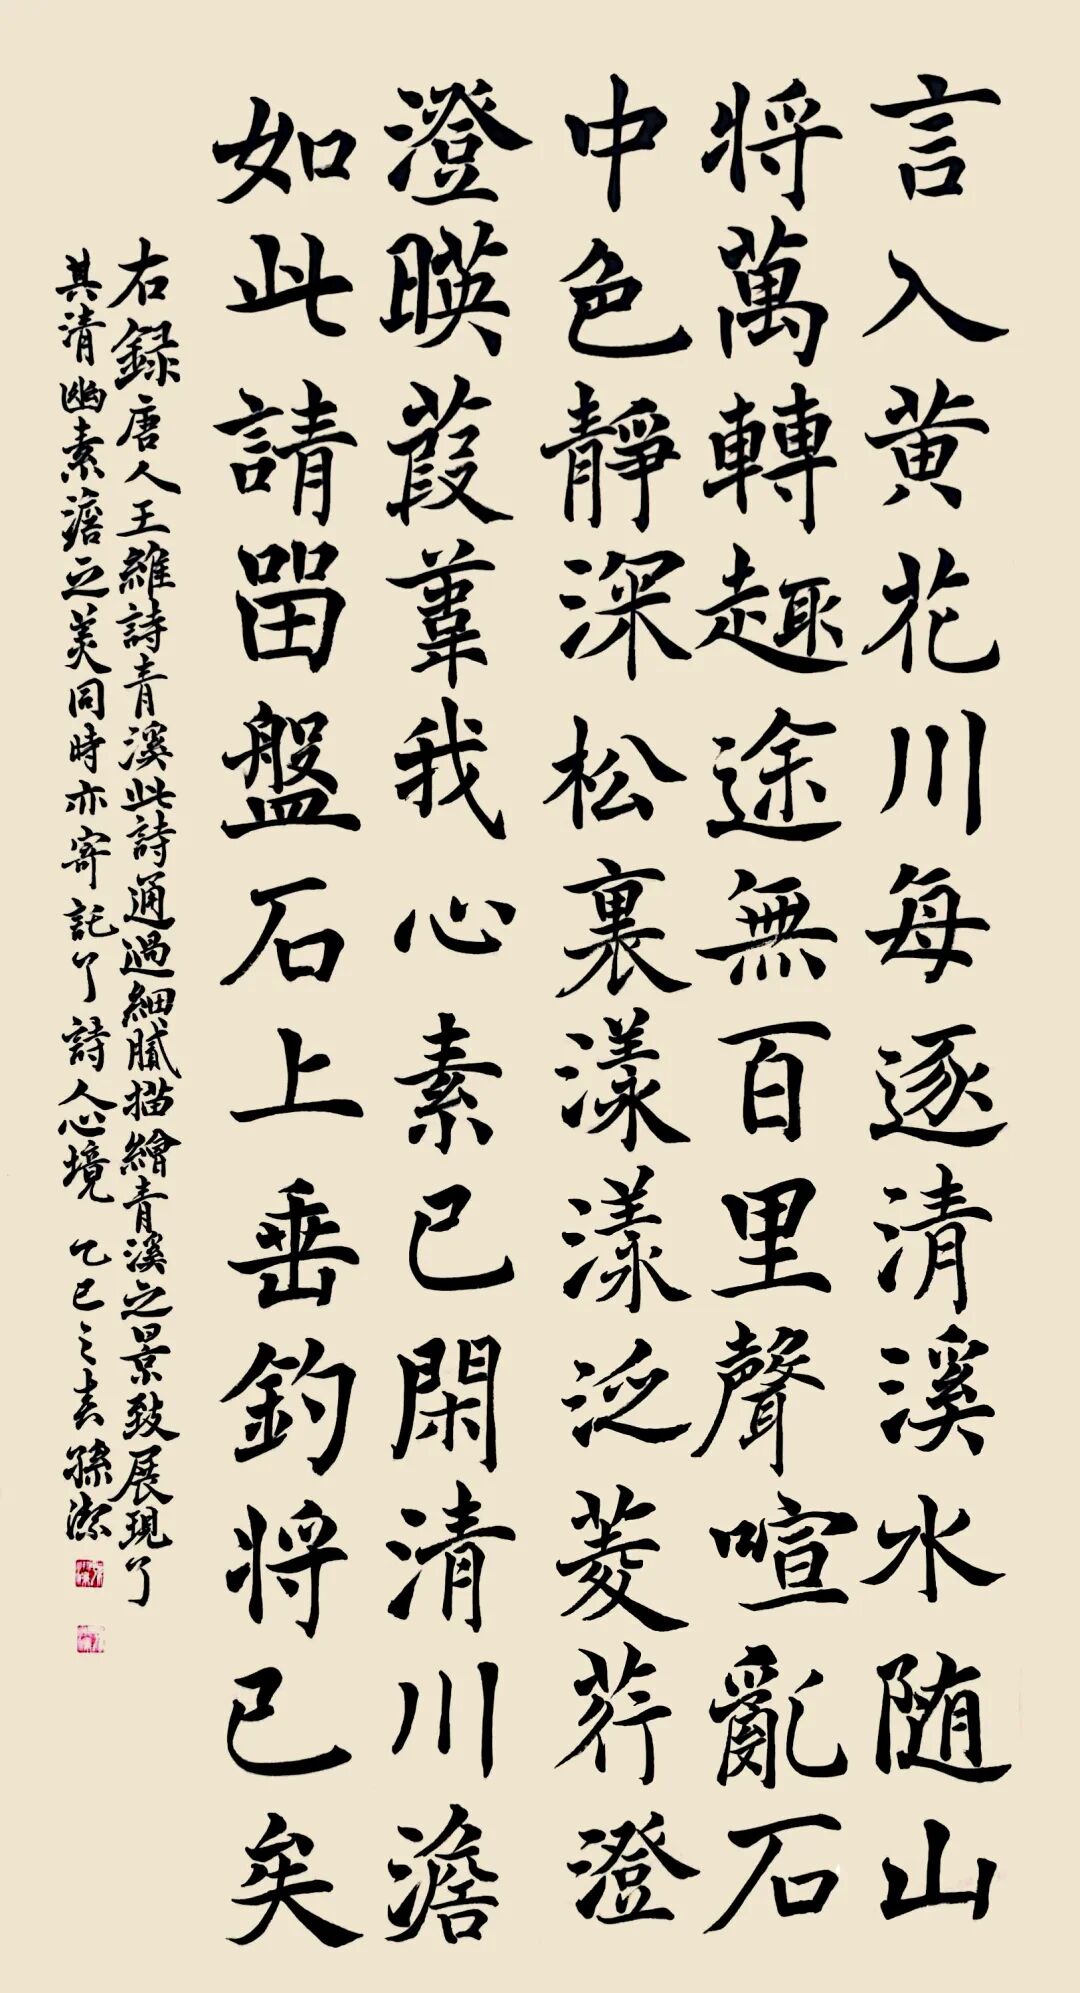 言入黄花川每逐清溪水随山
将萬轉趣途無百里聲喧亂石
中色靜深松裏漾漾泛菱荇澄
澄暎葭葦我心素已閑清川澹
如此請留盤石上垂釣将已矣
右録唐人王維詩青溪此詩通過細膩描繪青溪之景致展現了
其清幽素澹之美同時亦寄託了詩人心境 乙巳之春孫潔